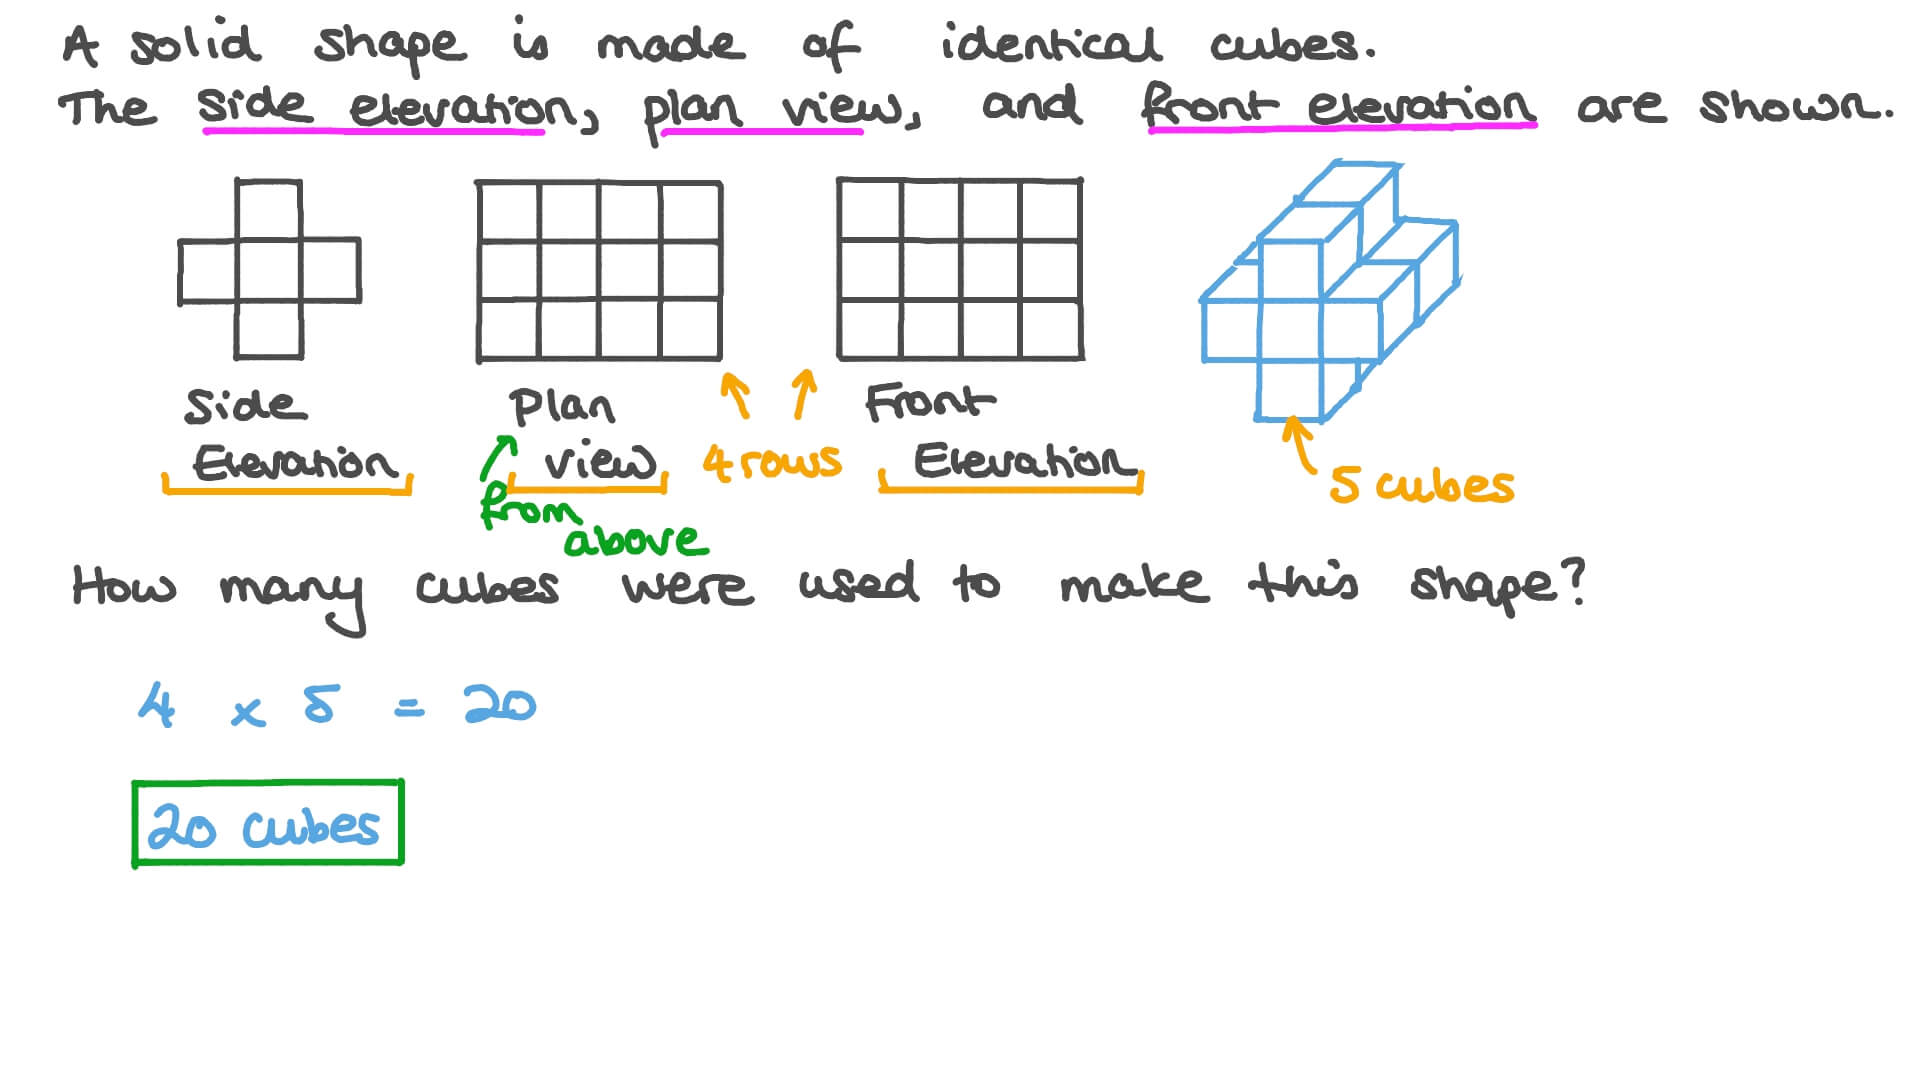 A solid shape is made of identical cubes.
The side elevation, plan view, and front elevation are shown.
Side
Elevation
Plan
view
from
above
4 rows
Front
Elevation
5 cubes
How many cubes were used to make this shape?
4 x 5 = 20
20 cubes